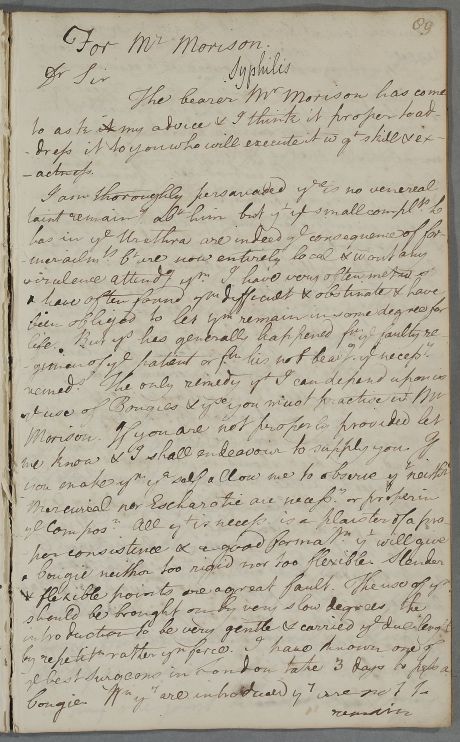 89
For Mr Morison.
Syphilis
Dr Sir
The bearer Mr Morison has come
to ask my advice & I think it proper to ad-
-dress it to you who will execute it w gt skill & ex-
-actness.
I am thoroughly persuaded yre is no venereal
taint remaing abt him but yt ye small complts he
has in ye Urethra are indeed ye consequence of for-
mer ailmts bt are now entirely local & wont any
virulence attendg ym. I have very often met
& have often found ym difficult & obstinate & have
been obliged to let ym remain in some degree for
life. But ys has generally happened fm ye faulty re-
gimen of ye patient or his not bearg ye necessy
remeds. The only remedy yt I can depend upon is
ye use of Bougies & yse you must practise wt Mr
Morison. If you are not properly provided let
me know & I shall endeavour to supply you. If
you make ym yr self allow me to observe yt neithr
Mercurial nor Escharotic are necessy or proper in
ye Composn. All yt is necessy is a plaister of a pro-
per consistence & a good formatn yt will give
a bougie neither too rigid nor too flexible. Slender
& flexible points are a great fault. The use of ym
should be brought on by very slow degrees, the
introduction to be very gentle & carried ye due length
by repetitn rather yn force. I have known one of
ye best surgeons in London take 3 days to pass a
bougie. Wn yy are introduced yy are not to
remain